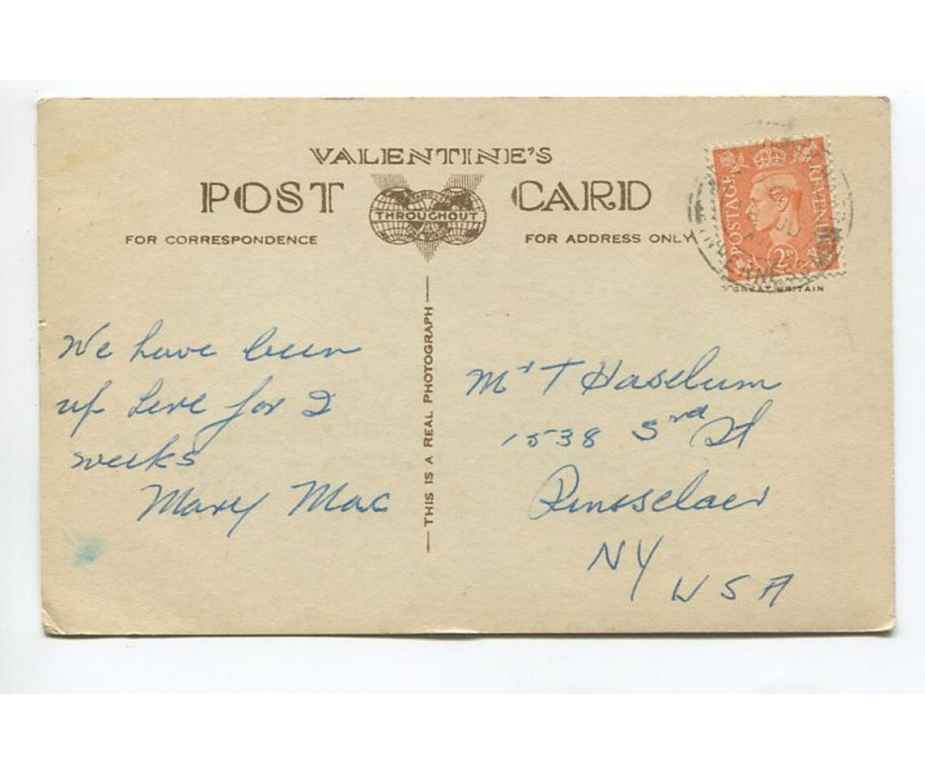 VALENTINE'S
POST CARD
THROUGHOUT
FOR CORRESPONDENCE
FOR ADDRESS ONLY
POSTAGE
REVENUE
2D
GREAT BRITAIN
We have been
up here for 2
weeks
Mary Mac
THIS IS A REAL PHOTOGRAPH
Mr T Haselum
1538 3rd St
Rensselaer
NY
USA